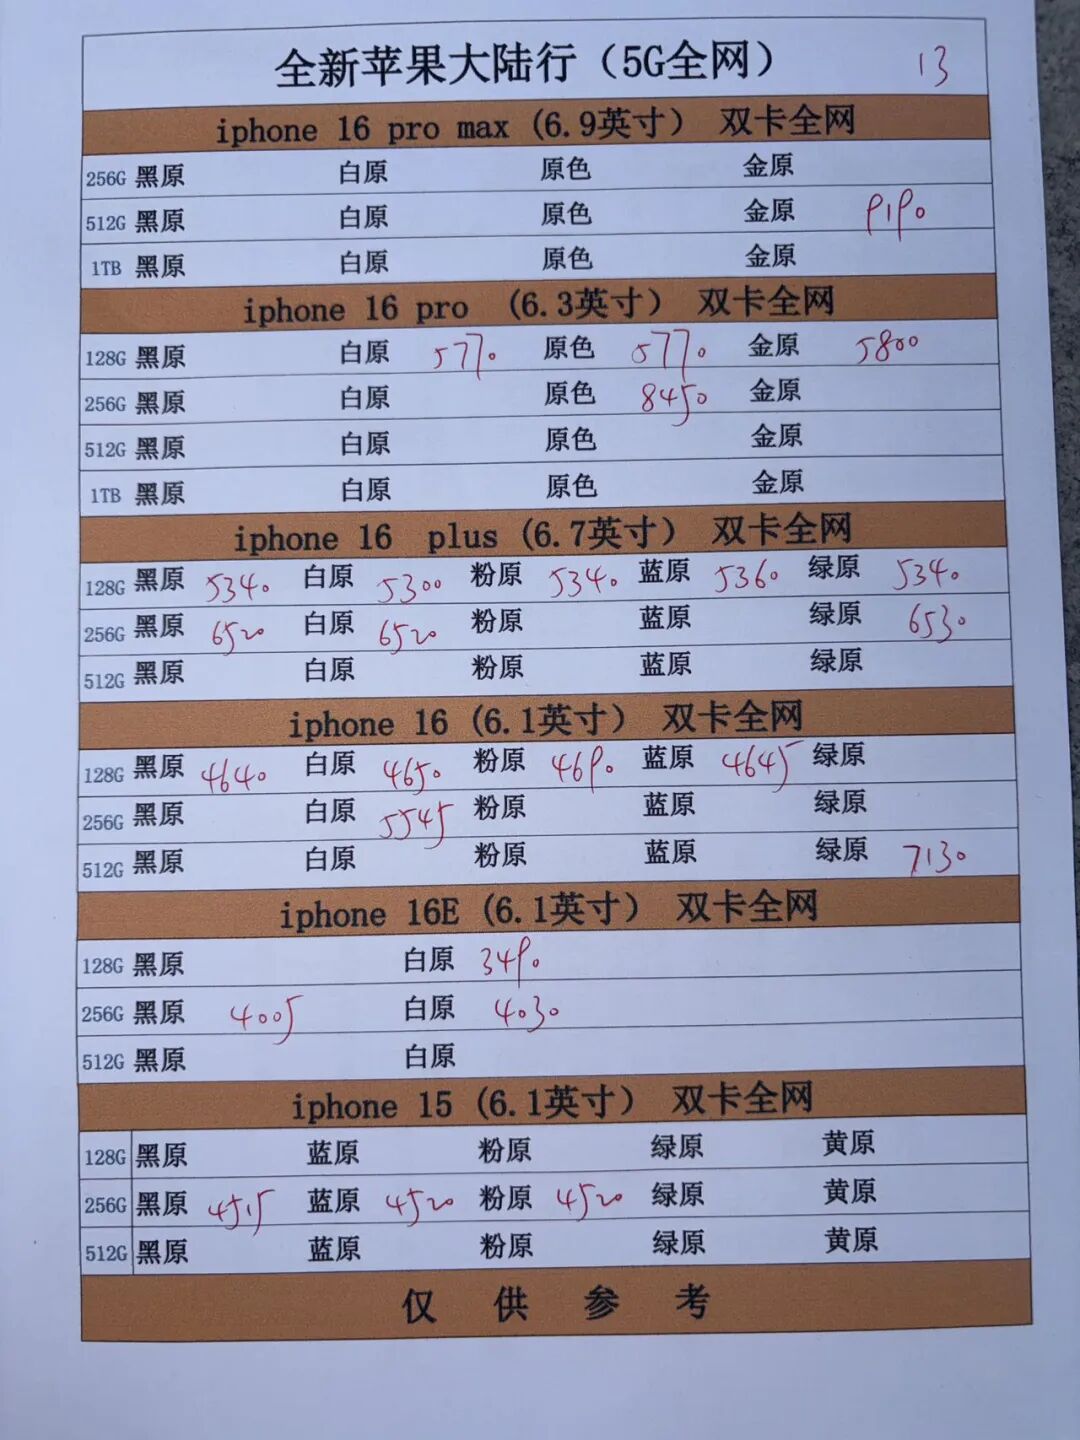 全新苹果大陆行（5G全网） 13
iphone 16 pro max (6.9英寸） 双卡全网
256G 黑原 白原 原色 金原
512G 黑原 白原 原色 金原 9190
1TB 黑原 白原 原色 金原
iphone 16 pro （6.3英寸） 双卡全网
128G 黑原 白原 5770 原色 5770 金原 5800
256G 黑原 白原 原色 8450 金原
512G 黑原 白原 原色 金原
1TB 黑原 白原 原色 金原
iphone 16 plus (6.7英寸） 双卡全网
128G 黑原 5340 白原 5300 粉原 5340 蓝原 5360 绿原 5340
256G 黑原 6520 白原 6520 粉原 蓝原 绿原 6530
512G 黑原 白原 粉原 蓝原 绿原
iphone 16 (6.1英寸） 双卡全网
128G 黑原 4640 白原 4650 粉原 4690 蓝原 4645 绿原
256G 黑原 白原 5545 粉原 蓝原 绿原
512G 黑原 白原 粉原 蓝原 绿原 7130
iphone 16E (6.1英寸） 双卡全网
128G 黑原 白原 3490
256G 黑原 4005 白原 4030
512G 黑原 白原
iphone 15 (6.1英寸） 双卡全网
128G 黑原 蓝原 粉原 绿原 黄原
256G 黑原 4515 蓝原 4520 粉原 4520 绿原 黄原
512G 黑原 蓝原 粉原 绿原 黄原
仅 供 参 考